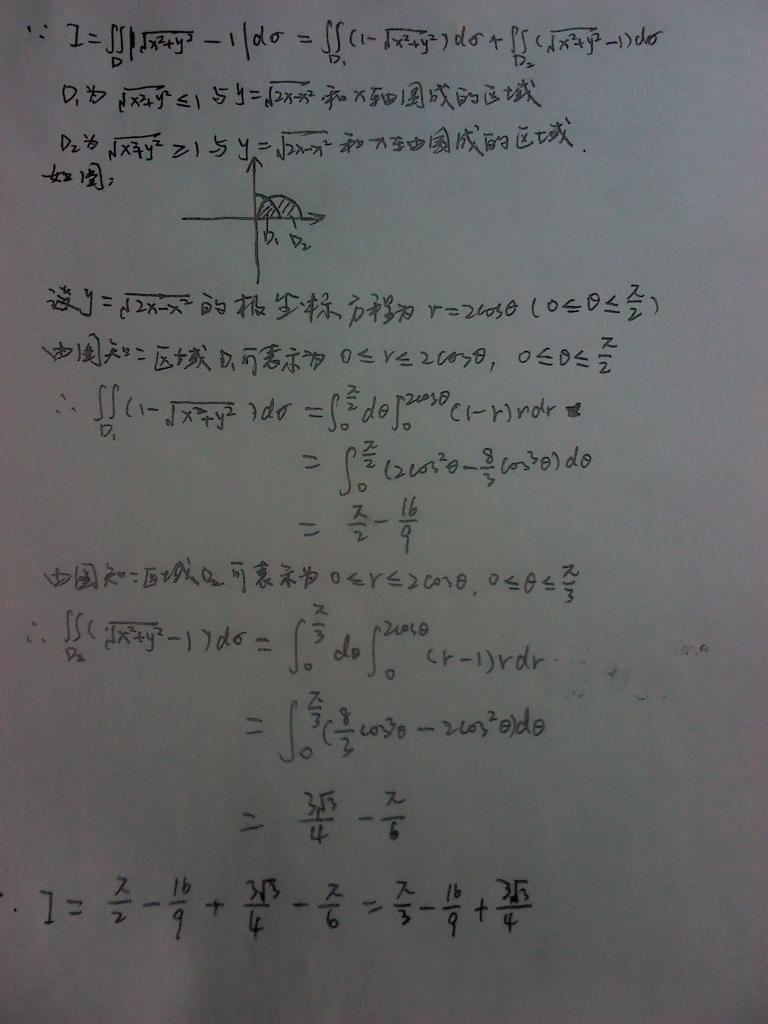 ∵ I = ∬_D |√(x²+y²) - 1| dσ = ∬_D₁ (1-√(x²+y²)) dσ + ∬_D₂ (√(x²+y²) - 1) dσ
D₁为 √(x²+y²) ≤ 1 与 y = √(2x-x²) 和 x轴围成的区域
D₂为 √(x²+y²) ≥ 1 与 y = √(2x-x²) 和 x轴围成的区域.
如图:
D₁ D₂
设 y = √(2x-x²) 的极坐标方程为 r = 2cosθ (0 ≤ θ ≤ π/2)
由图知: 区域 D₁可表示为 0 ≤ r ≤ 2cosθ, 0 ≤ θ ≤ π/2
∴ ∬_D₁ (1-√(x²+y²)) dσ = ∫_0^{π/2} dθ ∫_0^{2cosθ} (1-r) r dr
= ∫_0^{π/2} (2cos²θ - 8/3 cos³θ) dθ
= π/2 - 16/9
由图知: 区域 D₂ 可表示为 0 ≤ r ≤ 2cosθ, 0 ≤ θ ≤ π/3
∴ ∬_D₂ (√(x²+y²) - 1) dσ = ∫_0^{π/3} dθ ∫_0^{2cosθ} (r-1) r dr
= ∫_0^{π/3} (8/3 cos³θ - 2cos²θ) dθ
= 3√3/4 - π/6
∴ I = π/2 - 16/9 + 3√3/4 - π/6 = π/3 - 16/9 + 3√3/4